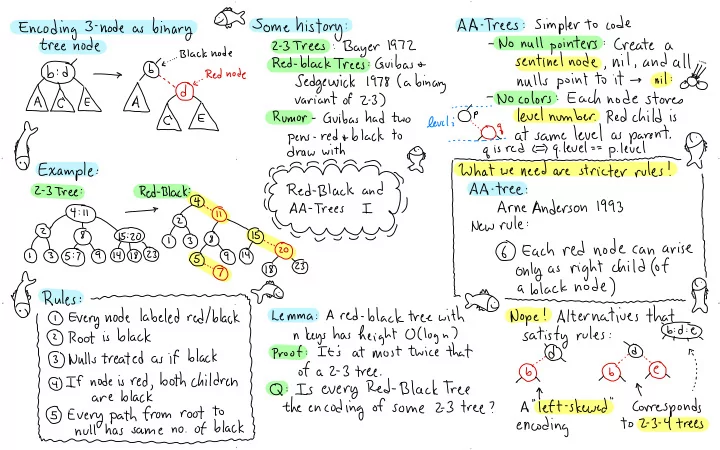 Encoding 3-node as binary
tree node
Black node
Red node
b:d
b
d
A
C
E
A
C
E
Example:
2-3 Tree:
Red-Black:
4:11
2
8
15:20
1
3
5:7
9
14
18
23
4
11
2
1
3
8
15
5
9
14
20
7
18
23
Rules:
① Every node labeled red/black
② Root is black
③ Nulls treated as if black
④ If node is red, both children
are black
⑤ Every path from root to
null has same no. of black
Some history:
2-3 Trees: Bayer 1972
Red-black Trees: Guibas &
Sedgewick 1978 (a binary
variant of 2-3)
Rumor - Guibas had two
pens - red & black to
draw with
Red-Black and
AA-Trees I
Lemma: A red-black tree with
n keys has height O(log n)
Proof: It's at most twice that
of a 2-3 tree.
Q: Is every Red-Black Tree
the encoding of some 2-3 tree?
AA-Trees: Simpler to code
- No null pointers: Create a
sentinel node, nil, and all
nulls point to it → nil:
- No colors: Each node stores
level number. Red child is
at same level as parent.
q is red ⇔ q.level == p.level
level i
p
q
What we need are stricter rules!
AA-tree:
Arne Anderson 1993
New rule:
⑥ Each red node can arise
only as right child (of
a black node)
Nope! Alternatives that
satisfy rules:
b:d:e
d
b
d
b
e
A "left-skewed"
encoding
Corresponds
to 2-3-4 trees